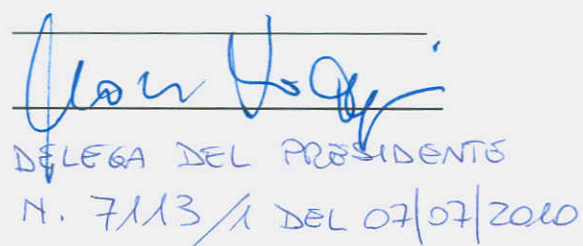 DELEGA DEL PRESIDENTE
N. 7113/1 DEL 07/07/2010